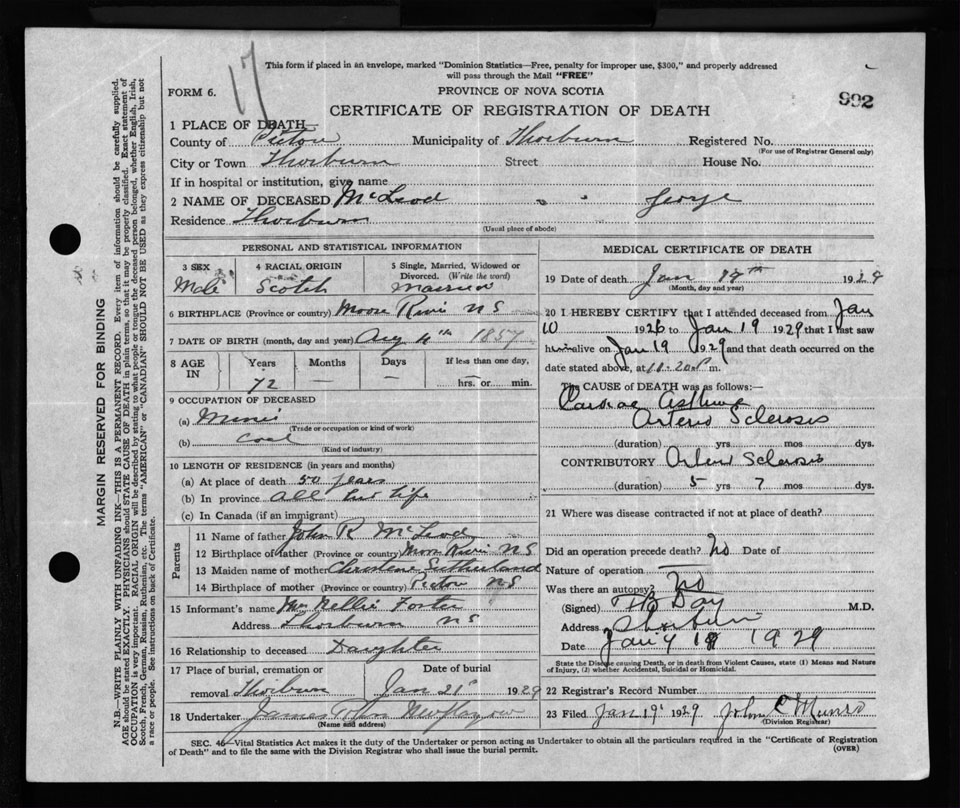 17
This form if placed in an envelope, marked "Dominion Statistics—Free, penalty for improper use, $300," and properly addressed
will pass through the Mail "FREE"
FORM 6.
PROVINCE OF NOVA SCOTIA
992
CERTIFICATE OF REGISTRATION OF DEATH
1 PLACE OF DEATH—
County of Pictou Municipality of Thorburn Registered No.
(For use of Registrar General only)
City or Town Thorburn Street House No.
If in hospital or institution, give name
2 NAME OF DECEASED McLeod George
Residence Thorburn
(Usual place of abode)
PERSONAL AND STATISTICAL INFORMATION
3 SEX 4 RACIAL ORIGIN 5 Single, Married, Widowed or
Divorced. (Write the word)
Male Scotch Married
6 BIRTHPLACE (Province or country) Moose River N S
7 DATE OF BIRTH (month, day and year) Aug 4th 1857
8 AGE IN Years Months Days If less than one day,
72 — — hrs. or min.
9 OCCUPATION OF DECEASED
(a) Miner
(Trade or occupation or kind of work)
(b) Coal
(Kind of industry)
10 LENGTH OF RESIDENCE (in years and months)
(a) At place of death 50 years
(b) In province all his life
(c) In Canada (if an immigrant)
Parents
11 Name of father John R McLeod
12 Birthplace of father (Province or country) Moose River N S
13 Maiden name of mother Christene Sutherland
14 Birthplace of mother (Province or country) Pictou N S
15 Informant's name Mrs Nellie Foster
Address Thorburn N S
16 Relationship to deceased Daughter
17 Place of burial, cremation or Date of burial
removal Thorburn Jan 21st 1929
18 Undertaker James John New Glasgow
(Name and address)
MEDICAL CERTIFICATE OF DEATH
19 Date of death Jan th 1929
(Month, day and year)
20 I HEREBY CERTIFY that I attended deceased from Jan
10 1926 to Jan 19 1929 that I last saw
him alive on Jan 19 1929 and that death occurred on the
date stated above, at 11.20 P m.
The CAUSE OF DEATH was as follows:—
Cardiac Asthma
Arterio Sclerosis
(duration) yrs mos dys.
CONTRIBUTORY Arterio Sclerosis
(duration) 5 yrs 7 mos dys.
21 Where was disease contracted if not at place of death?
Did an operation precede death? No Date of
Nature of operation
Was there an autopsy? No
(Signed) Day M.D.
Address Thorburn
Date Jany 19 1929
State the Disease causing Death, or in death from Violent Causes, state (1) Means and Nature
of Injury, (2) whether Accidental, Suicidal or Homicidal.
22 Registrar's Record Number
23 Filed Jan 19th 1929 John C Munro
(Division Registrar)
SEC. 46—Vital Statistics Act makes it the duty of the Undertaker or person acting as Undertaker to obtain all the particulars required in the "Certificate of Registration
of Death" and to file the same with the Division Registrar who shall issue the burial permit.
(OVER)
MARGIN RESERVED FOR BINDING
N.B.—WRITE PLAINLY WITH UNFADING INK—THIS IS A PERMANENT RECORD. Every item of information should be carefully supplied.
AGE should be stated EXACTLY. PHYSICIANS should STATE CAUSE OF DEATH in plain terms, so that it may be properly classified. Exact statement of
OCCUPATION is very important. RACIAL ORIGIN will be described by stating to what people or tongue the deceased person belonged, whether English, Irish,
Scotch, French, German, Russian, Ruthenian, etc. The terms "AMERICAN" or "CANADIAN" SHOULD NOT BE USED as they express citizenship but not
a race or people. See instructions on back of Certificate.